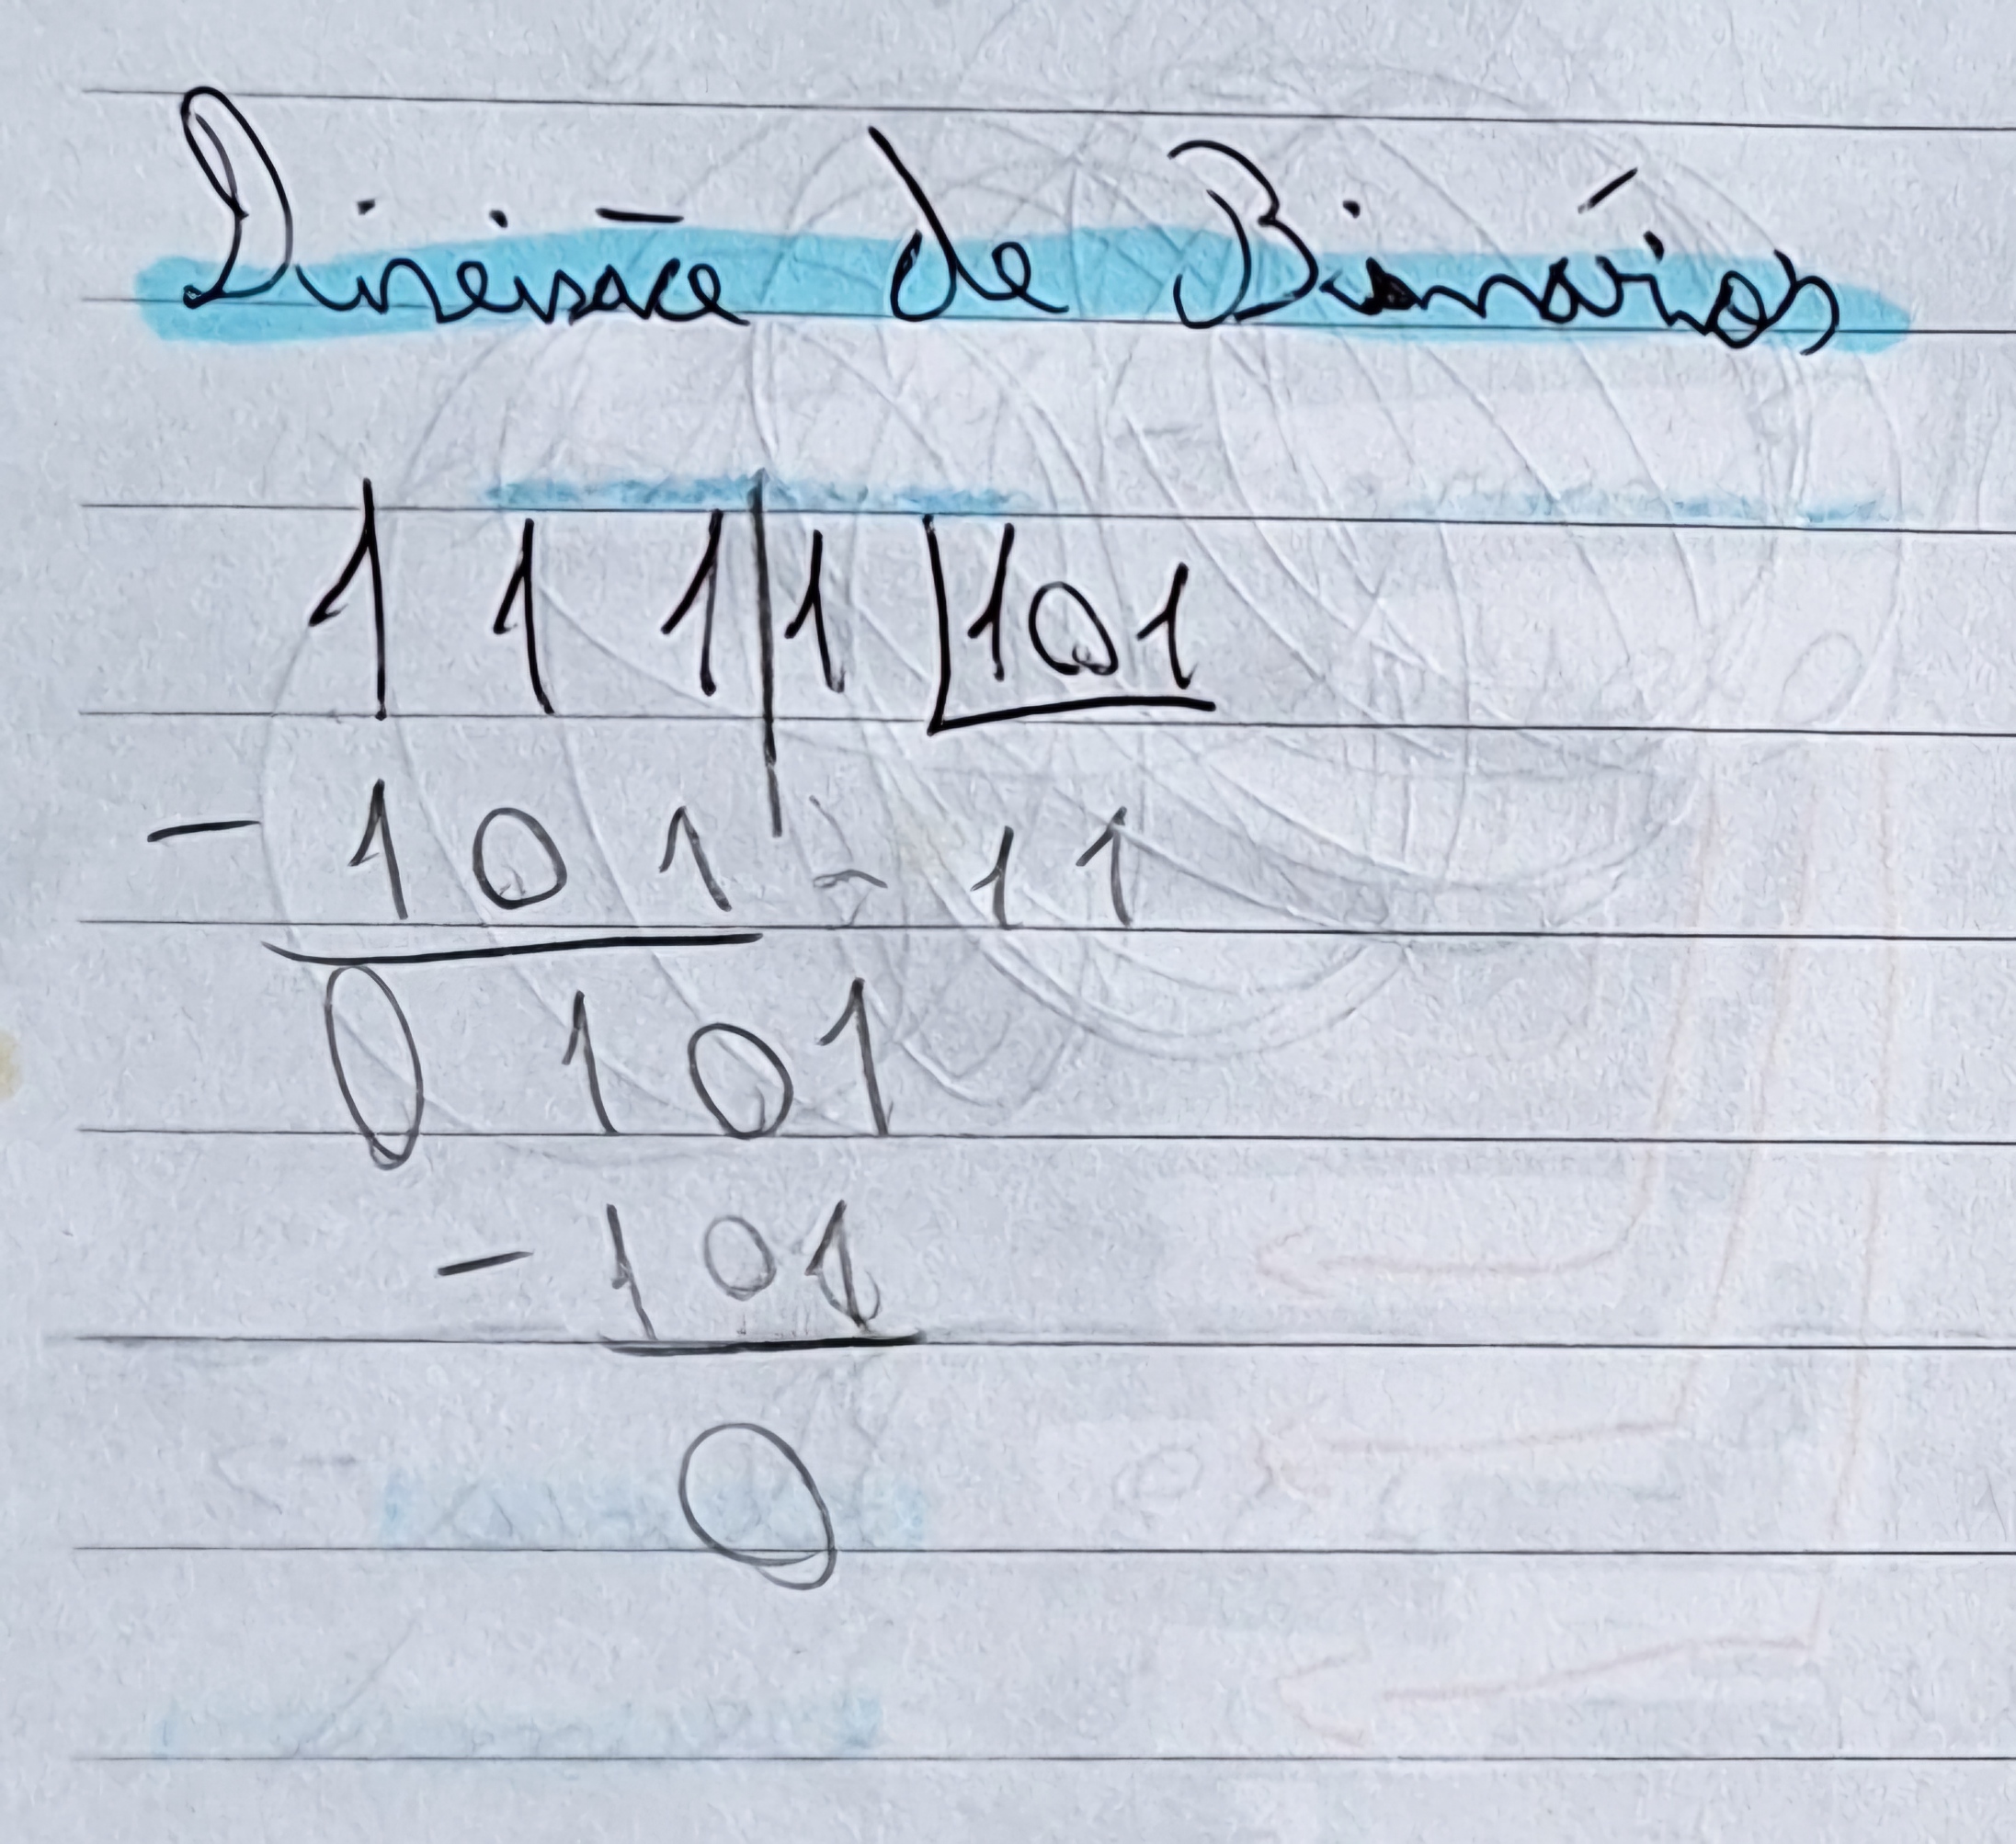 Divisão de Binários
1 1 1|1 |101
- 101 - 11
0 101
- 101
0